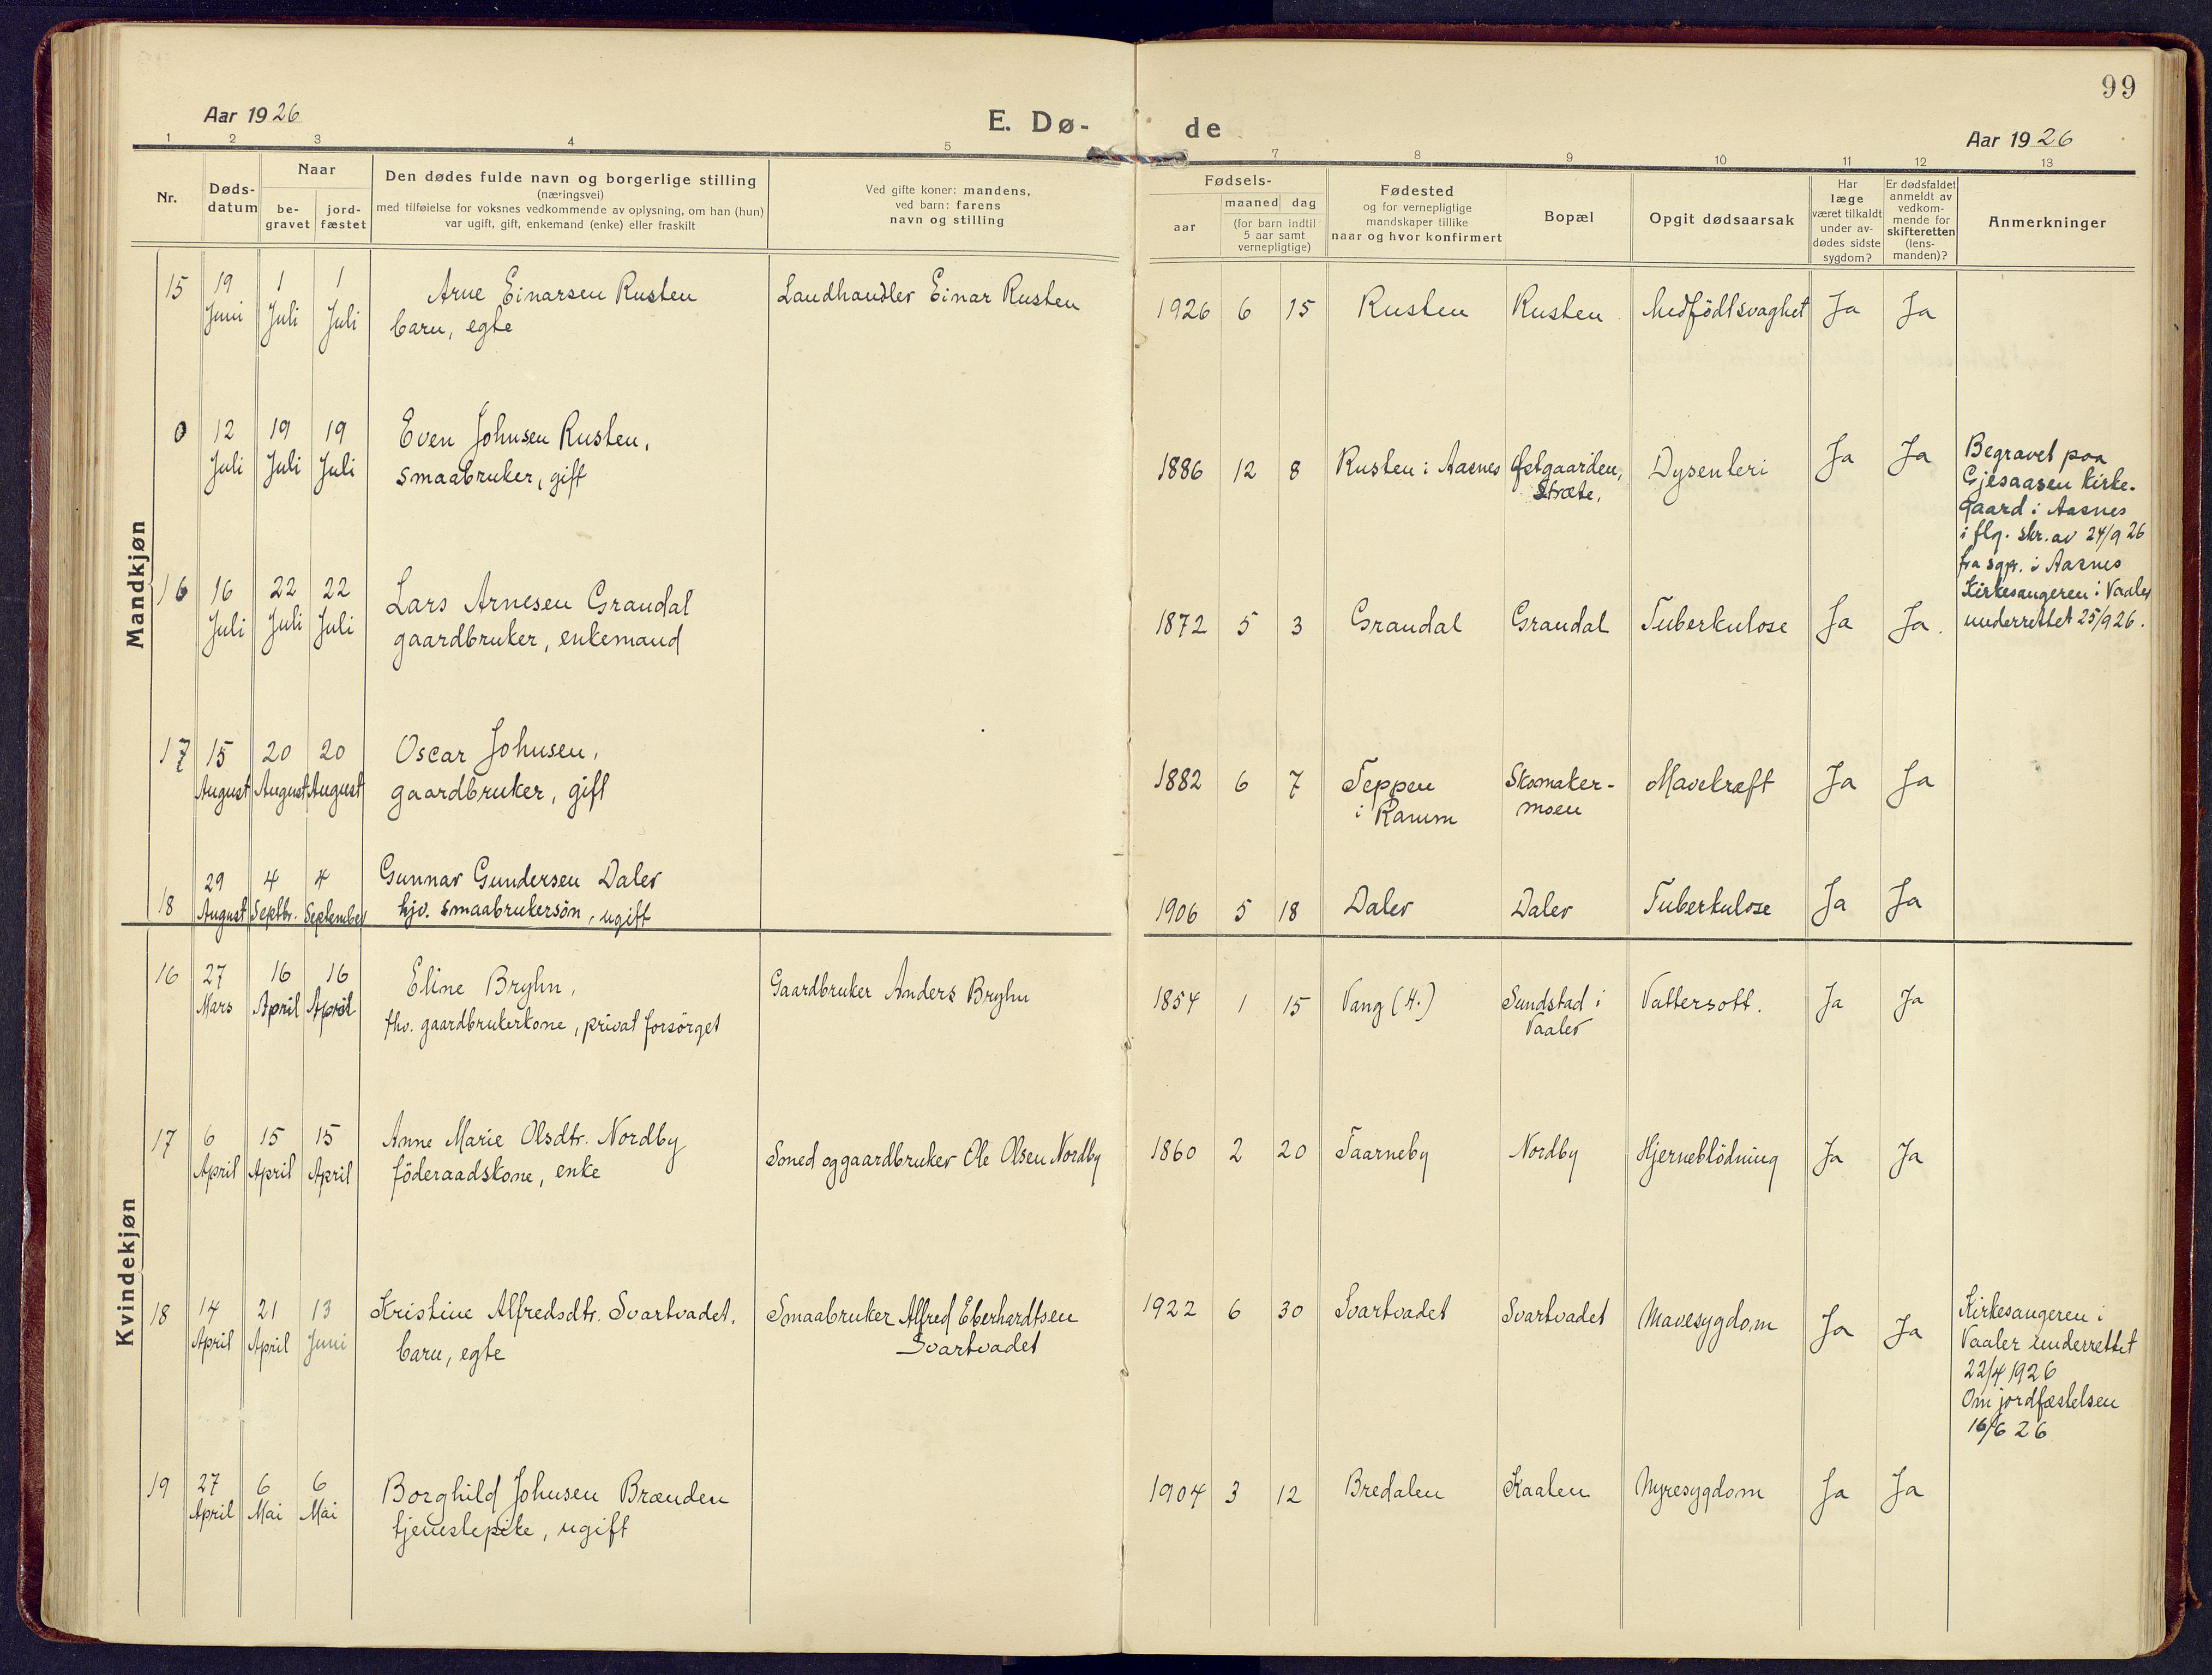 99
Aar 1926
E. Dø-
de
Aar 1926
1 2 3 4 5 7 8 9 10 11 12 13
Nr.
Døds-
datum
Naar
be-
gravet
jord-
fæstet
Den dødes fulde navn og borgerlige stilling
(næringsvei)
med tilføielse for voksnes vedkommende av oplysning, om han (hun)
var ugift, gift, enkemand (enke) eller fraskilt
Ved gifte koner: mandens,
ved barn: farens
navn og stilling
Fødsels-
aar
maaned
dag
(for barn indtil
5 aar samt
vernepligtige)
Fødested
og for vernepligtige
mandskaper tillike
naar og hvor konfirmert
Bopæl
Opgit dødsaarsak
Har
læge
været tilkaldt
under av-
dødes sidste
sygdom?
Er dødsfaldet
anmeldt av
vedkom-
mende for
skifteretten
(lens-
manden)?
Anmerkninger
Mandkjøn
15 19 1 1 Arne Einarsen Rusten Landhandler Einar Rusten 1926 6 15 Rusten Rusten Medfödt svaghet Ja Ja
Juni Juli Juli barn, egte
0 12 19 19 Even Johnsen Rusten, 1886 12 8 Rusten i Aasnes Østgaarden, Dysenteri Ja Ja
Juli Juli Juli smaabruker, gift Stræte.
Begravet paa
Gjesaasen kirke-
gaard i Aasnes
i flg. skr. av 24/9 26
fra sgpr. i Aasnes
Kirkesangeren i Vaaler
underrettet 25/9 26.
16 16 22 22 Lars Arnesen Grandal 1872 5 3 Grandal Grandal Tuberkulose Ja Ja.
Juli Juli Juli gaardbruker, enkemand
17 15 20 20 Oscar Johnsen, 1882 6 7 Teppen Skomaker- Mavekræft Ja Ja
August August August gaardbruker, gift i Ramm moen
18 29 4 4 Gunnar Gundersen Daler 1906 5 18 Daler Daler Tuberkulose Ja Ja
August Septbr. September hjv. smaabrukersön, ugift
Kvindekjøn
16 27 16 16 Eline Bryhn, Gaardbruker Anders Bryhn 1854 1 15 Vang (H.) Sundstad i Vattersott. Ja Ja
Mars April April fhv. gaardbrukerkone, privat forsörget Vaaler
17 6 15 15 Anne Marie Olsdtr. Nordby Smed og gaardbruker Ole Olsen Nordby 1860 2 20 Taarneby Nordby Hjerneblödning Ja Ja
April April April föderaadskone, enke
18 14 21 13 Kristine Alfredsdtr. Svartvadet, Smaabruker Alfred Eberhardtsen 1922 6 30 Svartvadet Svartvadet Mavesygdom Ja Ja
April April Juni barn, egte Svartvadet
Kirkesangeren i
Vaaler underrettet
22/4 1926
Om jordfæstelsen
16/6 26
19 27 6 6 Borghild Johnsen Brænden 1904 3 12 Bredalen Kaalen Nyresygdom Ja Ja
April Mai Mai tjenestepike, ugift